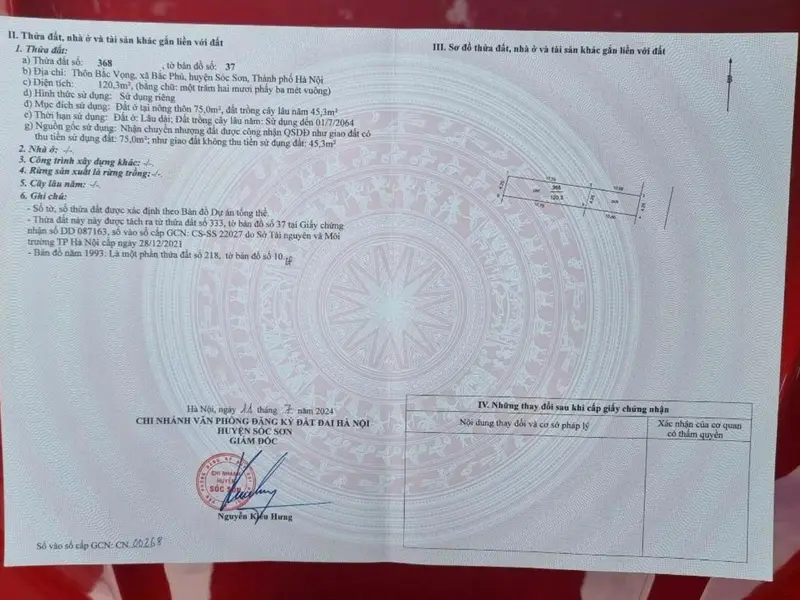 II. Thửa đất, nhà ở và tài sản khác gắn liền với đất
1. Thửa đất:
a) Thửa đất số: 368 , tờ bản đồ số: 37
b) Địa chỉ: Thôn Bắc Vọng, xã Bắc Phú, huyện Sóc Sơn, Thành phố Hà Nội
c) Diện tích: 120,3m², (bằng chữ: một trăm hai mươi phẩy ba mét vuông)
d) Hình thức sử dụng: Sử dụng riêng
đ) Mục đích sử dụng: Đất ở tại nông thôn 75,0m², đất trồng cây lâu năm 45,3m²
e) Thời hạn sử dụng: Đất ở: Lâu dài; Đất trồng cây lâu năm: Sử dụng đến 01/7/2064
g) Nguồn gốc sử dụng: Nhận chuyển nhượng đất được công nhận QSDĐ như giao đất có
thu tiền sử dụng đất: 75,0m²; như giao đất không thu tiền sử dụng đất: 45,3m²
2. Nhà ở: -/-.
3. Công trình xây dựng khác: -/-.
4. Rừng sản xuất là rừng trồng: -/-.
5. Cây lâu năm: -/-.
6. Ghi chú:
- Số tờ, số thửa đất được xác định theo Bản đồ Dự án tổng thể.
- Thửa đất này này được tách ra từ thửa đất số 333, tờ bản đồ số 37 tại Giấy chứng
nhận số DD 087163, số vào sổ cấp GCN: CS-SS 22027 do Sở Tài nguyên và Môi
trường TP Hà Nội cấp ngày 28/12/2021
- Bản đồ năm 1993: Là một phần thửa đất số 218, tờ bản đồ số 10.
Hà Nội, ngày 11 tháng 7 năm 2024
CHI NHÁNH VĂN PHÒNG ĐĂNG KÝ ĐẤT ĐAI HÀ NỘI
HUYỆN SÓC SƠN
GIÁM ĐỐC
CHI NHÁNH
HUYỆN
SÓC SƠN
Nguyễn Kiều Hưng
Số vào sổ cấp GCN: CN 00268
III. Sơ đồ thửa đất, nhà ở và tài sản khác gắn liền với đất
B
368
120.3
IV. Những thay đổi sau khi cấp giấy chứng nhận
Nội dung thay đổi và cơ sở pháp lý
Xác nhận của cơ quan
có thẩm quyền